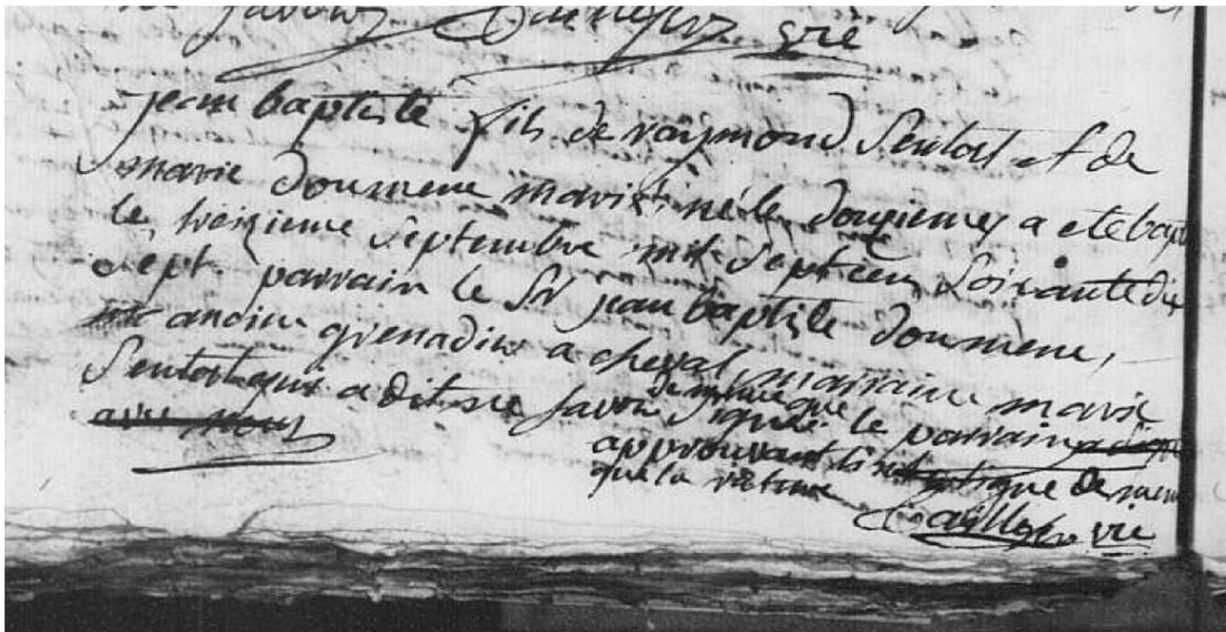 savoir vie
jean baptiste fils de raymond Sentost et de
marie doumenc mariés né le douzieme a ete bapt
le treizieme Septembre mil Septcen Soixante dix
Sept. parrain le Sr jean baptiste doumenc,
ancien grenadier a cheval, marraine marie
Sentost qui a dit ne savoir Signer de même que le parrain
avec nous
approuvant de meme
que la rature
vie